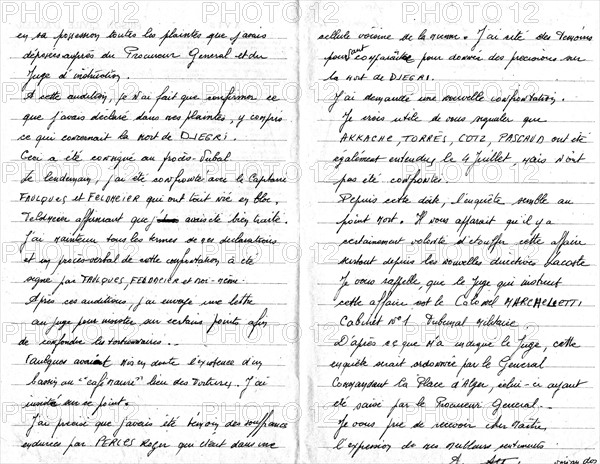 en sa possession toutes les plaintes que j'avais
déposées auprès du Procureur General et du
Juge d'instruction.
A cette audition, je n'ai fait que confirmer ce
que j'avais déclaré dans mes plaintes, y compris
ce qui concernait la mort de DJEGRI.
Ceci a été consigné au procès-verbal
Le lendemain, j'ai été confronté avec le Capitaine
FAULQUES et FELDMEIER qui ont tout nié en bloc,
Feldmeier affirmant que j'avais été bien traité.
J'ai maintenu tous les termes de mes déclarations
et un procès-verbal de notre confrontation a été
signé par FAULQUES, FELDMEIER et moi-même.
Après ces auditions, j'ai envoyé une lettre
au juge pour insister sur certains points afin
de confondre les tortionnaires...
Faulques mis en doute l'existence d'un
bassin au "café maure" lieu des tortures. J'ai
insisté sur ce point.
J'ai précisé que j'avais été témoin des souffrances
endurées par PERLES Roger qui était dans une
cellule voisine de la mienne. J'ai cité des Témoins
pouvant comparaître pour donner des precisions sur
la mort de DJEGRI.
J'ai demandé une nouvelle confrontation.
Je crois utile de vous signaler que
AKKACHE, TORRES, COTZ, PASCAUD ont été
également entendus le 4 juillet, mais n'ont
pas été confrontés.
Depuis cette date, l'enquête semble au
point mort. Il vous apparait qu'il y a
certainement volonté d'étouffer cette affaire
surtout depuis les nouvelles directives Lacoste
Je vous rappelle, que le Juge qui instruit
cette affaire est le Colonel MARCHELLETTI
Cabinet N°1 Tribunal Militaire.
D'après ce que m'a indiqué le Juge, cette
enquête serait ordonnée par le General
Commandant la Place d'Alger, celui-ci ayant
été saisi par le Procureur General...
Je vous prie de recevoir cher Maître,
l'expression de mes meilleurs sentiments.